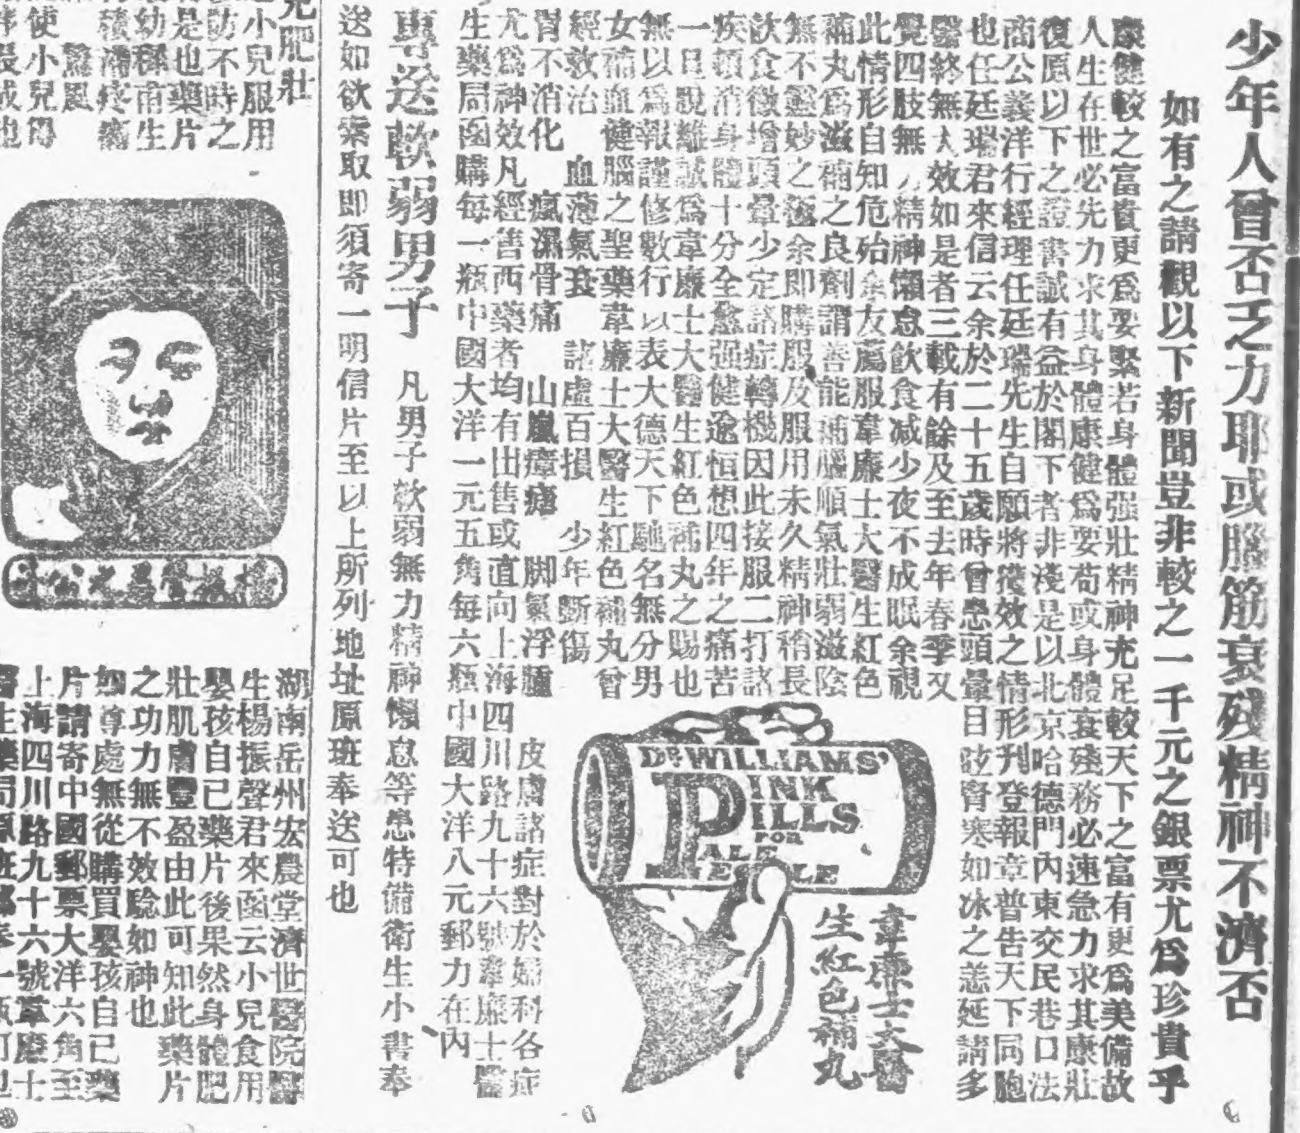 少年人曾否乏力耶或腦筋衰殘精神不濟否
如有之請觀以下新聞豈非較之一千元之銀票尤為珍貴乎
康健較之富貴更為要緊若身體强壯精神充足較天下之富有更為美備故
人生在世必先力求其身體康健為要苟或身體衰殘務必速急力求其康壯
復原以下之證書誠有益於閣下者非淺是以北京哈德門內東交民巷口法
商公義洋行經理任廷瑞先生自願將獲效之情形刊登報章普告天下同胞
也任廷瑞君來信云余於二十五歲時曾患頭暈目眩腎寒如冰之恙延請多
醫終無大效如是者三載有餘及至去年春季又
覺四肢無力精神懶怠飲食减少夜不成眠余視
此情形自知危殆余友薦服韋廉士大醫生紅色
補丸為滋補之良劑謂善能補腦順氣壯弱滋陰
無不靈妙之極余即購服及服用未久精神稍長
飲食微增頭暈少定諸症轉機因此接服二打諸
疾頓消身體十分全愈强健逾恒想四年之痛苦
一旦脫離誠為韋廉士大醫生紅色補丸之賜也
無以為報謹修數行以表大德天下馳名無分男
女補血健腦之聖藥韋廉士大醫生紅色補丸曾
經救治 血薄氣衰 諸虛百損 少年斷傷
胃不消化 瘋濕骨痛 山嵐瘴瘧 脚氣浮腫 皮膚諸症對於婦科各症
尤為神效凡經售西藥者均有出售或直向上海四川路九十六號韋廉士醫
生藥局函購每一瓶中國大洋一元五角每六瓶中國大洋八元郵力在內
DR WILLIAMS'
PINK
PILLS
FOR
PALE
PEOPLE
韋廉士大醫
生紅色補丸
專送軟弱男子 凡男子軟弱無力精神懶怠等患特備衛生小書奉
送如欲索取即須寄一明信片至以上所列地址原班奉送可也
兒肥壯
小兒服用
防不時之
是也藥片
幼稚而生
驚風
使小兒得
湖南岳州宏農堂濟世醫院醫
生楊振聲君來函云小兒食用
嬰孩自己藥片後果然身體肥
壯肌膚豐盈由此可知此藥片
之功力無不效驗如神也
如尊處無從購買嬰孩自己藥
片請寄中國郵票大洋六角至
上海四川路九十六號韋廉士
醫生藥局原班郵奉一瓶可也